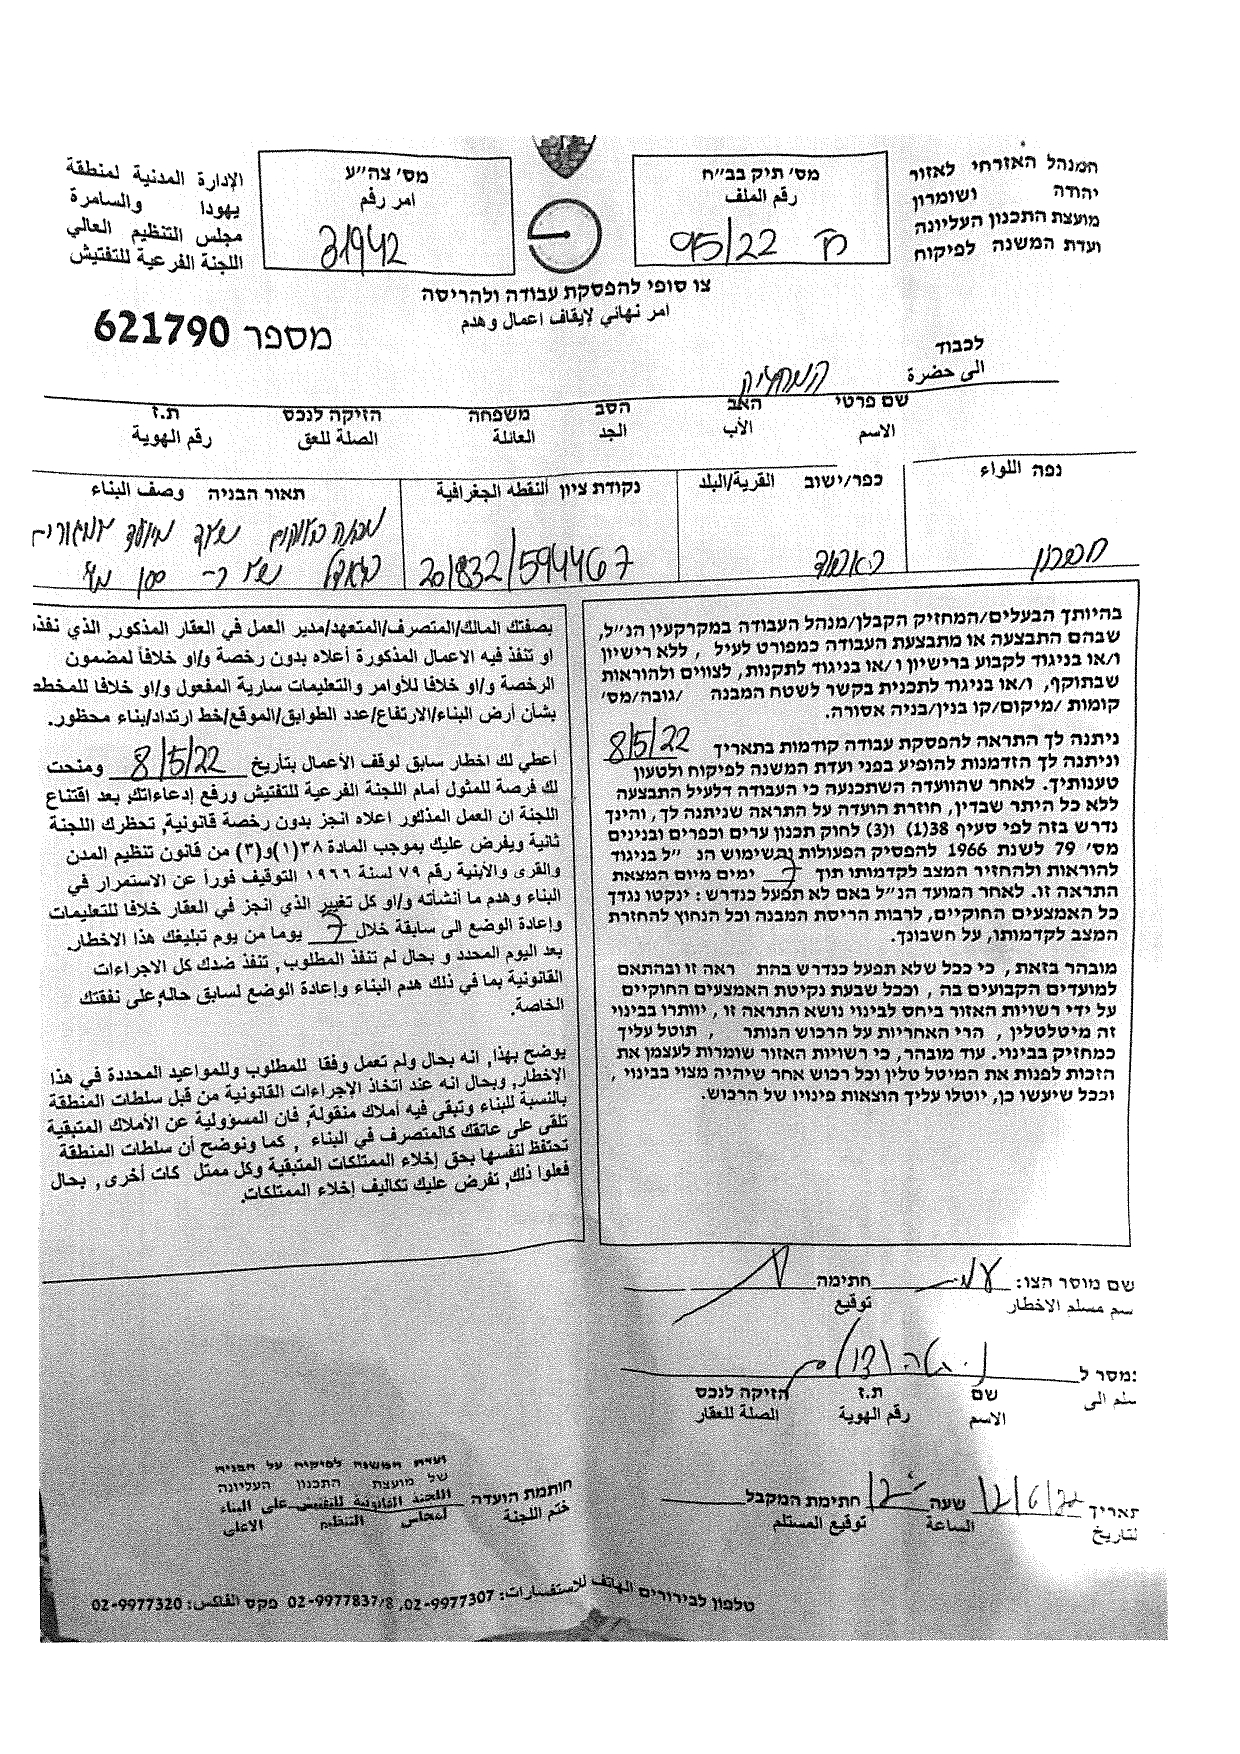 המנהל האזרחי לאזור
יהודה ושומרון
מועצת התכנון העליונה
ועדת המשנה לפיקוח
מס׳ תיק בב״ח
رقم الملف
95/22
מס׳ צה״ע
امر رقم
31942
الإدارة المدنية لمنطقة
يهودا والسامرة
مجلس التنظيم العالي
اللجنة الفرعية للتفتيش
צו סופי להפסקת עבודה ולהריסה
امر نهائي لإيقاف اعمال وهدم
מספר 621790
לכבוד
الى حضرة
המחזיק
שם פרטי האב הסב משפחה הזיקה לנכס ת.ז
الاسم الأب الجد العائلة الصلة للعق رقم الهوية
נפה اللواء
כפר/ישוב القرية/البلد
נקודת ציון النقطه الجغرافية
תאור הבניה وصف البناء
חברון
20832/594467
בהיותך הבעלים/המחזיק הקבלן/מנהל העבודה במקרקעין הנ״ל,
שבהם התבצעה או מתבצעת העבודה כמפורט לעיל , ללא רישיון
ו/או בניגוד לקבוע ברישיון ו/או בניגוד לתקנות, לצווים ולהוראות
שבתוקף, ו/או בניגוד לתכנית בקשר לשטח המבנה /גובה/מס׳
קומות /מיקום/קו בנין/בניה אסורה.
ניתנה לך התראה להפסקת עבודה קודמות בתאריך 8/5/22
וניתנה לך הזדמנות להופיע בפני ועדת המשנה לפיקוח ולטעון
טענותיך. לאחר שהוועדה השתכנעה כי העבודה דלעיל התבצעה
ללא כל היתר שבדין, חוזרת הועדה על התראה שניתנה לך, והינך
נדרש בזה לפי סעיף 38(1) ו(3) לחוק תכנון ערים וכפרים ובנינים
מס׳ 79 לשנת 1966 להפסיק הפעולות והשימוש הנ ״ל בניגוד
להוראות ולהחזיר המצב לקדמותו תוך 7 ימים מיום המצאת
התראה זו. לאחר המועד הנ״ל באם לא תפעל כנדרש : ינקטו נגדך
כל האמצעים החוקיים, לרבות הריסת המבנה וכל הנחוץ להחזרת
המצב לקדמותו, על חשבונך.
מובהר בזאת , כי ככל שלא תפעל כנדרש בהת ראה זו ובהתאם
למועדים הקבועים בה , וככל שבעת נקיטת האמצעים החוקיים
על ידי רשויות האזור ביחס לבינוי נושא התראה זו , יוותרו בבינוי
זה מיטלטלין , הרי האחריות על הרכוש הנותר , תוטל עליך
כמחזיק בבינוי. עוד מובהר, כי רשויות האזור שומרות לעצמן את
הזכות לפנות את המיטל טלין וכל רכוש אחר שיהיה מצוי בבינוי ,
וככל שיעשו כן, יוטלו עליך הוצאות פינויו של הרכוש.
بصفتك المالك/المتصرف/المتعهد/مدير العمل في العقار المذكور, الذي نفذ
او تنفذ فيه الاعمال المذكورة أعلاه بدون رخصة و/او خلافاً لمضمون
الرخصة و/او خلافا للأوامر والتعليمات سارية المفعول و/او خلافا للمخطط
بشأن أرض البناء/الارتفاع/عدد الطوابق/الموقع/خط ارتداد/بناء محظور.
أعطي لك اخطار سابق لوقف الأعمال بتأريخ 8/5/22 ومنحت
لك فرصة للمثول أمام اللجنة الفرعية للتفتيش ورفع إدعاءاتك, بعد اقتناع
اللجنة ان العمل المذكور اعلاه انجز بدون رخصة قانونية, تحظرك اللجنة
ثانية ويفرض عليك بموجب المادة ٣٨(١)و(٣) من قانون تنظيم المدن
والقرى والأبنية رقم ٧٩ لسنة ١٩٦٦ التوقيف فوراً عن الاستمرار في
البناء وهدم ما أنشأته و/او كل تغيير الذي انجز في العقار خلافا للتعليمات
وإعادة الوضع الى سابقة خلال 7 يوما من يوم تبليغك هذا الاخطار.
بعد اليوم المحدد و بحال لم تنفذ المطلوب, تنفذ ضدك كل الاجراءات
القانونية بما في ذلك هدم البناء وإعادة الوضع لسابق حاله, على نفقتك
الخاصة.
يوضح بهذا, انه بحال ولم تعمل وفقا للمطلوب وللمواعيد المحددة في هذا
الإخطار, وبحال انه عند اتخاذ الإجراءات القانونية من قبل سلطات المنطقة
بالنسبة للبناء وتبقى فيه أملاك منقولة, فان المسؤولية عن الأملاك المتبقية
تلقى على عاتقك كالمتصرف في البناء , كما ونوضح أن سلطات المنطقة
تحتفظ لنفسها بحق إخلاء الممتلكات المتبقية وكل ممتل كات أخرى, بحال
فعلوا ذلك, تفرض عليك تكاليف إخلاء الممتلكات.
שם מוסר הצו: חתימה
سم مسلم الاخطار توقيع
מסר ל:
سلم الى
שם ת.ז הזיקה לנכס
الاسم رقم الهوية الصلة للعقار
תאריך 12/6/22 שעה חתימת המקבל
لتاريخ الساعة توقيع المستلم
חותמת הועדה
ختم اللجنة
ועדת המשנה לפיקוח על הבניה
של מועצת התכנון העליונה
اللجنة القانونية للتفتيش على البناء
لمجلس التنظيم الاعلى
טלפון לבירורים الهاتف للاستفسارات: 02-9977307, 02-9977837/8 פקס الفاكس: 02-9977320